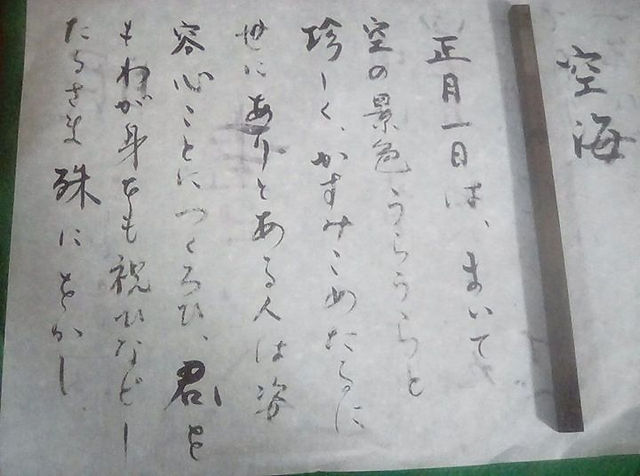 空海
正月一日は、まいて
空の景色うらうらと
珍しく、かすみこめたるに
世にありとある人は姿
容心ことにつくろひ、君を
もわが身をも祝ひなどし
たるさま殊にをかし